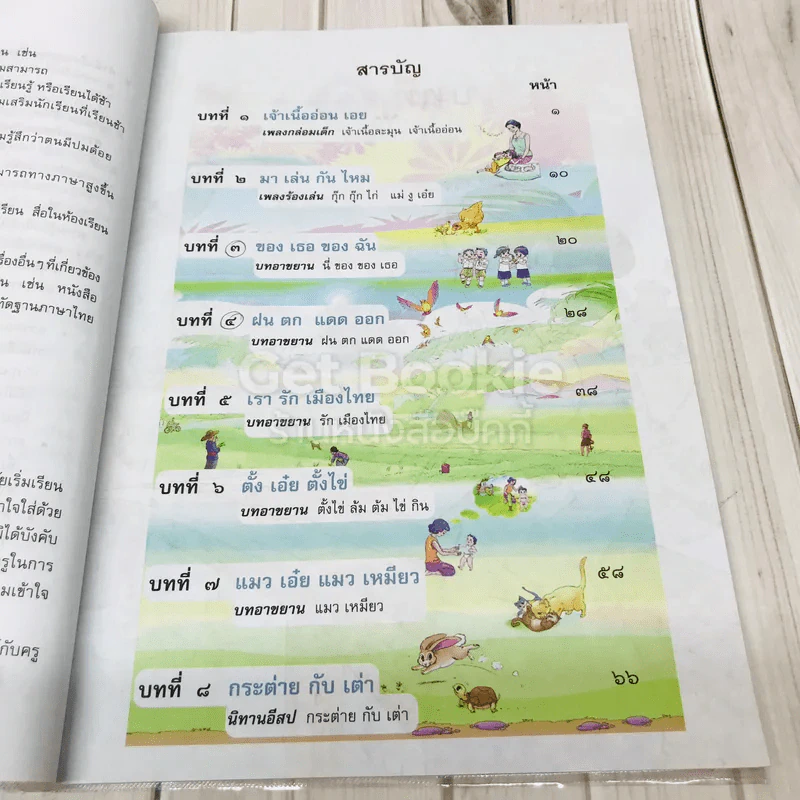 น เช่น
มสามารถ
เรียนรู้ หรือเรียนได้ช้า
มเสริมนักเรียนที่เรียนช้า
มรู้สึกว่าตนมีปมด้อย
มารถทางภาษาสูงขึ้น
เรียน สื่อในห้องเรียน
รื่องอื่นๆที่เกี่ยวข้อง
น เช่น หนังสือ
ทัดฐานภาษาไทย
ัยเริ่มเรียน
าใจใส่ด้วย
มิได้บังคับ
รูในการ
มเข้าใจ
กับครู
สารบัญ
หน้า
บทที่ ๑ เจ้าเนื้ออ่อน เอย ๑
เพลงกล่อมเด็ก เจ้าเนื้อละมุน เจ้าเนื้ออ่อน
บทที่ ๒ มา เล่น กัน ไหม ๑๐
เพลงร้องเล่น กุ๊ก กุ๊ก ไก่ แม่ งู เอ๋ย
บทที่ ๓ ของ เธอ ของ ฉัน ๒๐
บทอาขยาน นี่ ของ ของ เธอ
บทที่ ๔ ฝน ตก แดด ออก ๒๘
บทอาขยาน ฝน ตก แดด ออก
Get Bookie
บทที่ ๕ เรา รัก เมืองไทย ๓๘
บทอาขยาน รัก เมืองไทย
ร้านหนังสือบุ๊คกี้
บทที่ ๖ ตั้ง เอ๋ย ตั้งไข่ ๔๘
บทอาขยาน ตั้งไข่ ล้ม ต้ม ไข่ กิน
บทที่ ๗ แมว เอ๋ย แมว เหมียว ๕๘
บทอาขยาน แมว เหมียว
บทที่ ๘ กระต่าย กับ เต่า ๖๖
นิทานอีสป กระต่าย กับ เต่า